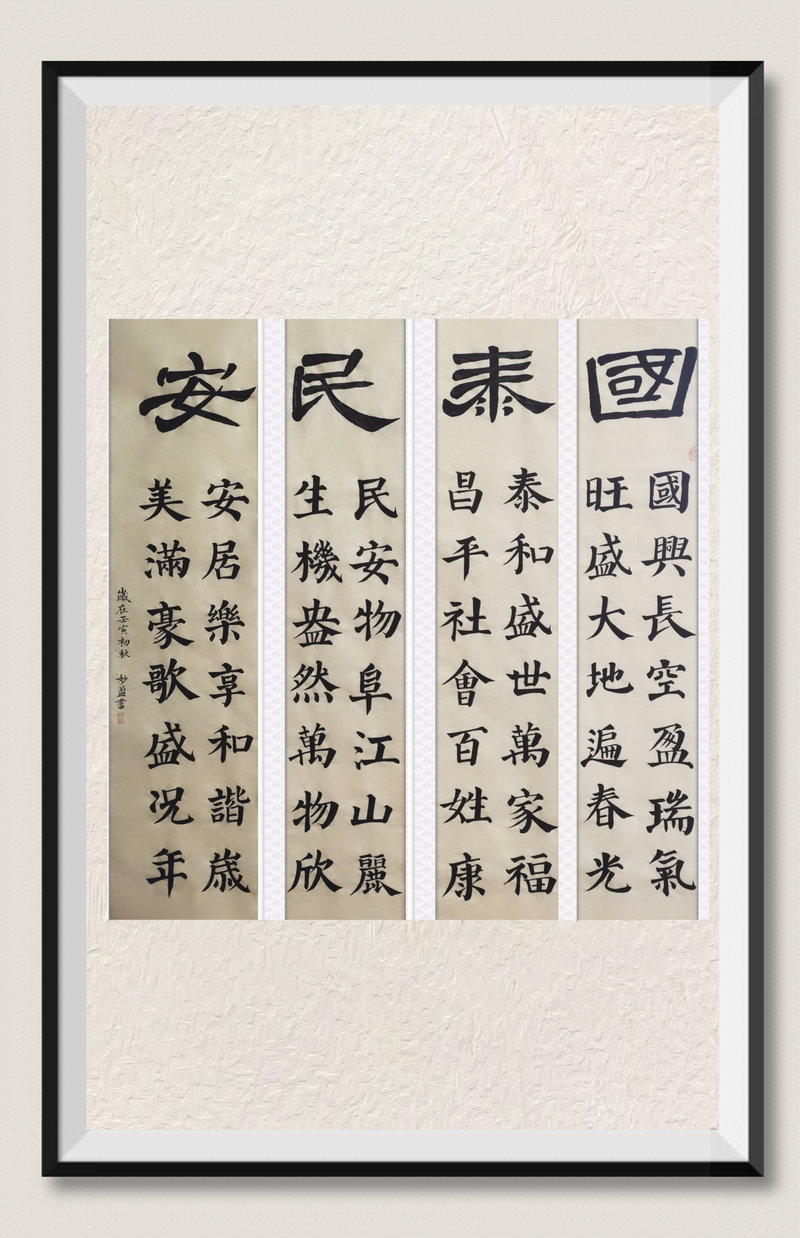 國
國興長空盈瑞氣
旺盛大地遍春光
泰
泰和盛世萬家福
昌平社會百姓康
民
民安物阜江山麗
生機盎然萬物欣
安
安居樂享和諧歲
美滿豪歌盛況年
歲在壬寅初秋 妙盈書